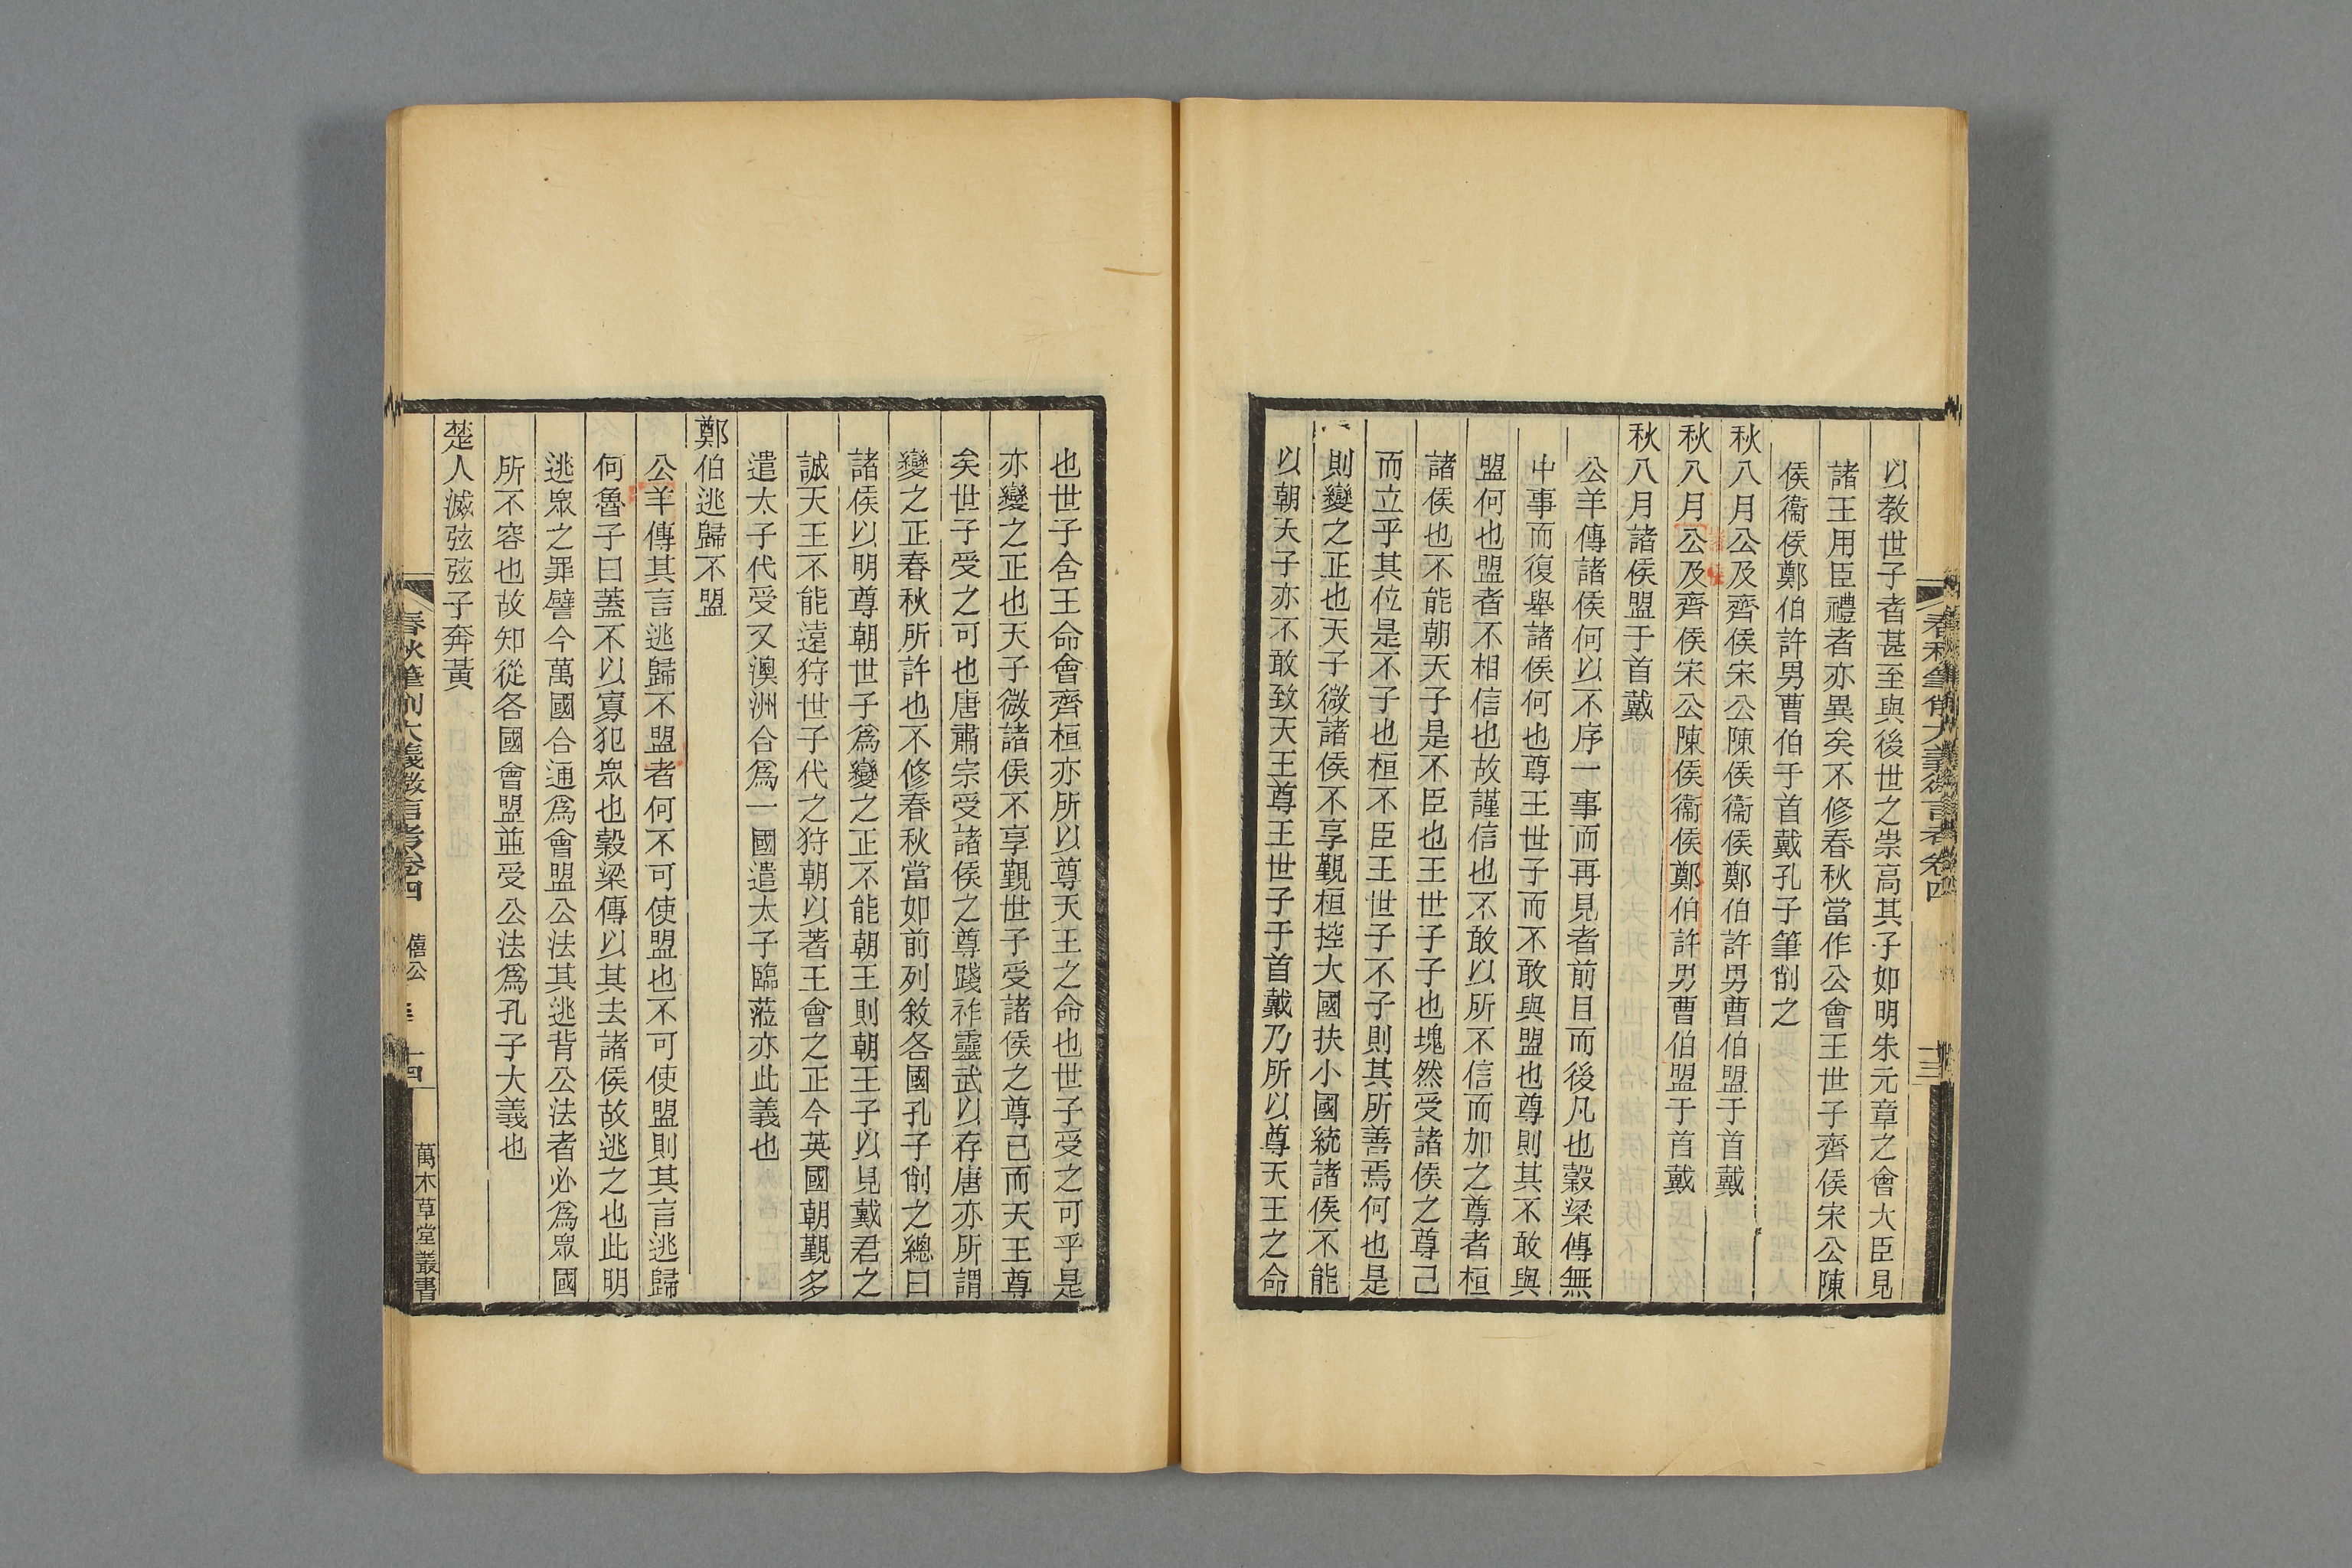 春秋筆削大義微言考卷四
十三
以教世子者甚至與後世之崇高其子如明朱元章之會大臣見
諸王用臣禮者亦異矣不修春秋當作公會王世子齊侯宋公陳
侯衞侯鄭伯許男曹伯于首戴孔子筆削之
秋八月公及齊侯宋公陳侯衞侯鄭伯許男曹伯盟于首戴
秋八月公及齊侯宋公陳侯衞侯鄭伯許男曹伯盟于首戴
秋八月諸侯盟于首戴
公羊傳諸侯何以不序一事而再見者前目而後凡也穀梁傳無
中事而復舉諸侯何也尊王世子而不敢與盟也尊則其不敢與
盟何也盟者不相信也故謹信也不敢以所不信而加之尊者桓
諸侯也不能朝天子是不臣也王世子子也塊然受諸侯之尊己
而立乎其位是不子也桓不臣王世子不子則其所善焉何也是
則變之正也天子微諸侯不享覲桓控大國扶小國統諸侯不能
以朝天子亦不敢致天王尊王世子于首戴乃所以尊天王之命
也世子含王命會齊桓亦所以尊天王之命也世子受之可乎是
亦變之正也天子微諸侯不享覲世子受諸侯之尊己而天王尊
矣世子受之可也唐肅宗受諸侯之尊踐祚靈武以存唐亦所謂
變之正春秋所許也不修春秋當如前列敘各國孔子削之總曰
諸侯以明尊朝世子爲變之正不能朝王則朝王子以見戴君之
誠天王不能遠狩世子代之狩朝以著王會之正今英國朝覲多
遣太子代受又澳洲合爲一國遣太子臨蒞亦此義也
鄭伯逃歸不盟
公羊傳其言逃歸不盟者何不可使盟也不可使盟則其言逃歸
何魯子曰蓋不以寡犯眾也穀梁傳以其去諸侯故逃之也此明
逃眾之罪譬今萬國合通爲會盟公法其逃背公法者必爲眾國
所不容也故知從各國會盟並受公法爲孔子大義也
楚人滅弦弦子奔黃
春秋筆削大義微言考卷四
僖公
十四
萬木草堂叢書